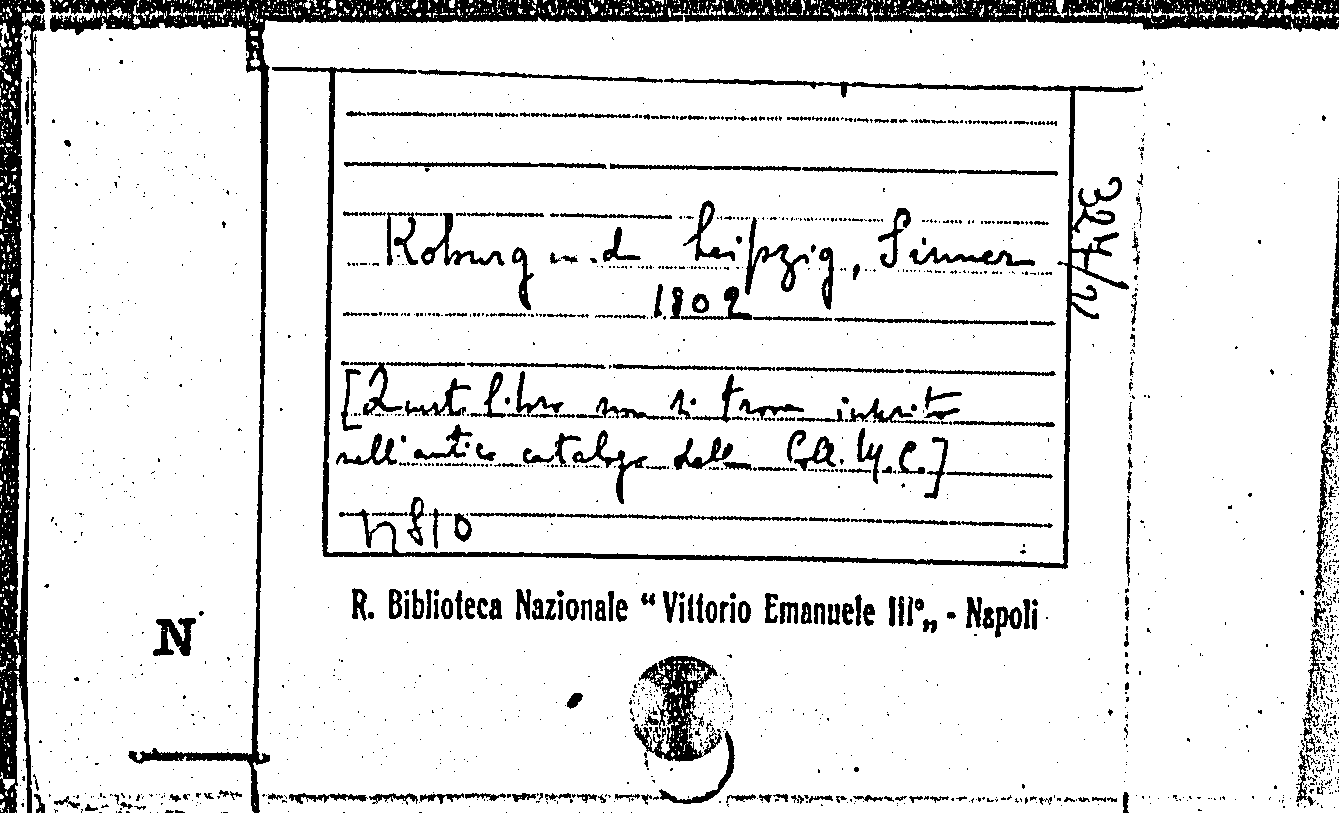 Koburg und Leipzig, Sinner
1802
[Questo libro non si trova inserito
nell'antico catalogo della C.A.M.C.]
n 810
R. Biblioteca Nazionale “Vittorio Emanuele III°„ - Napoli
N